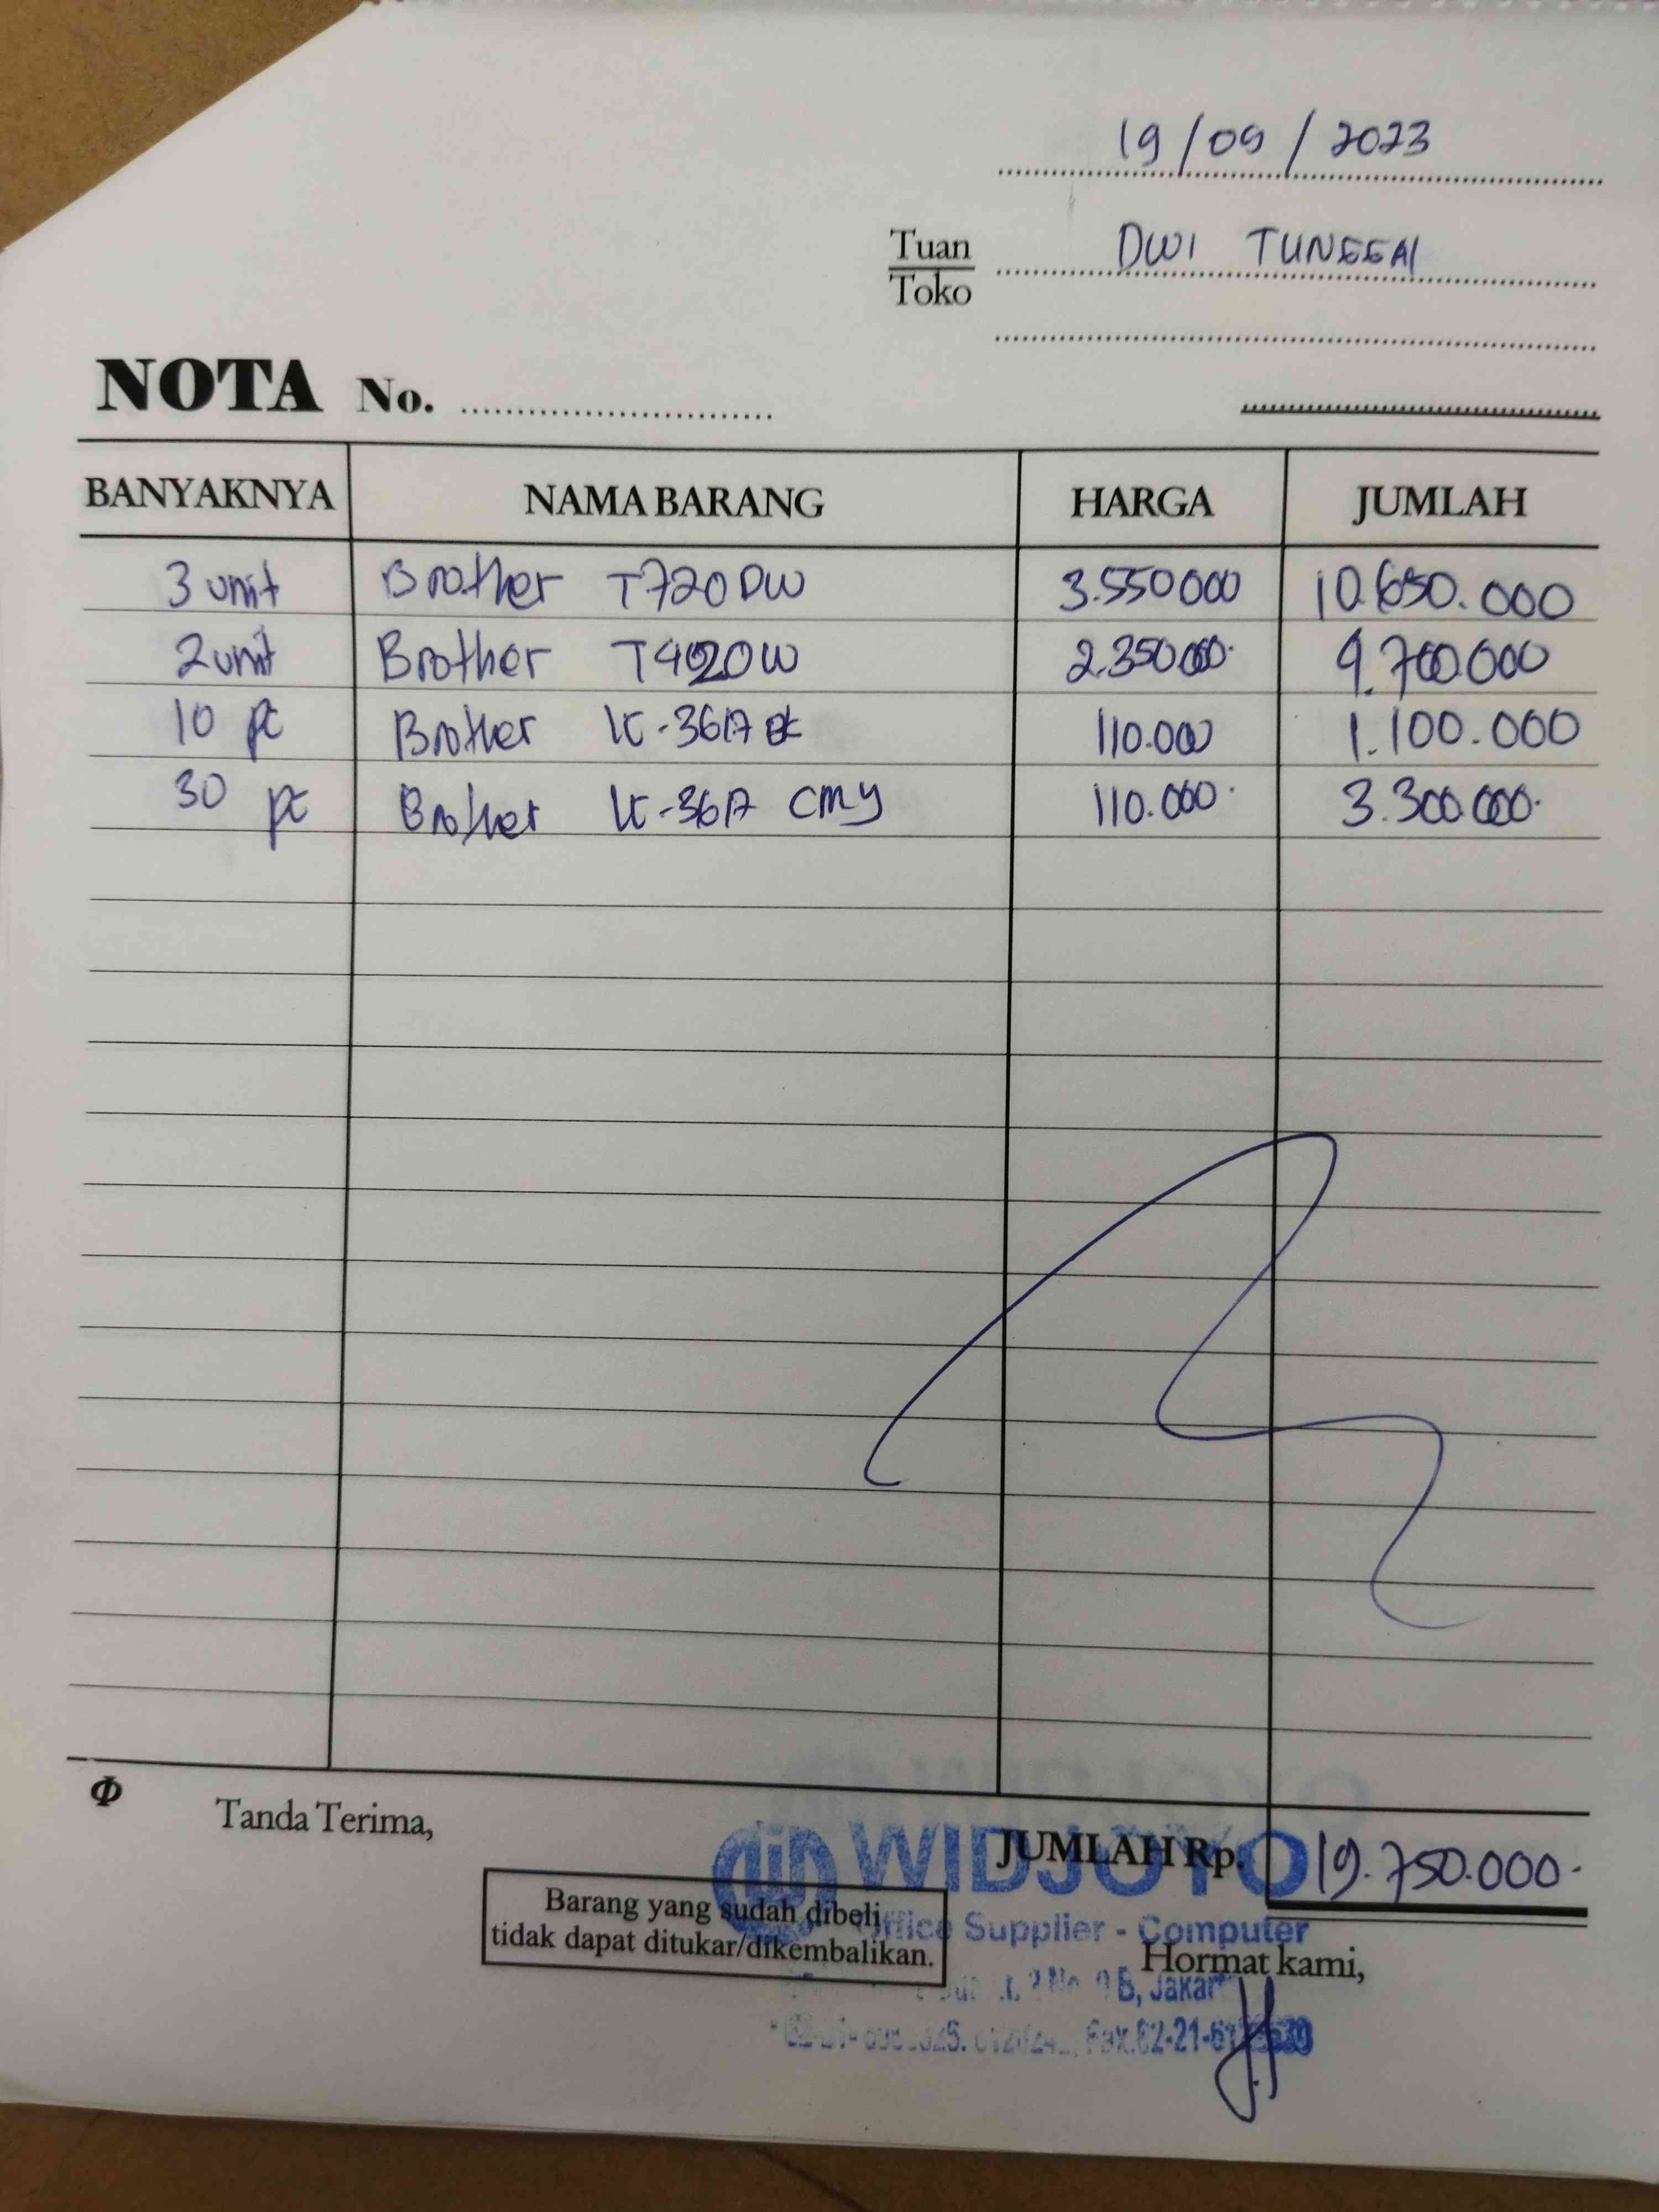 19/09/2023
Tuan
Toko
DWI TUNGGAL
NOTA No.
BANYAKNYA NAMA BARANG HARGA JUMLAH
3 unit Brother T720DW 3.550000 10.650.000
2 unit Brother T420W 2.350.000. 4.700.000
10 pc Brother 110.000 1.100.000
30 pc Brother CMY 110.000. 3.300.000.
Φ
Tanda Terima,
JUMLAH Rp. 19.750.000.
WIDJOYO
Barang yang sudah dibeli
tidak dapat ditukar/dikembalikan.
Office Supplier - Computer
Hormat kami,